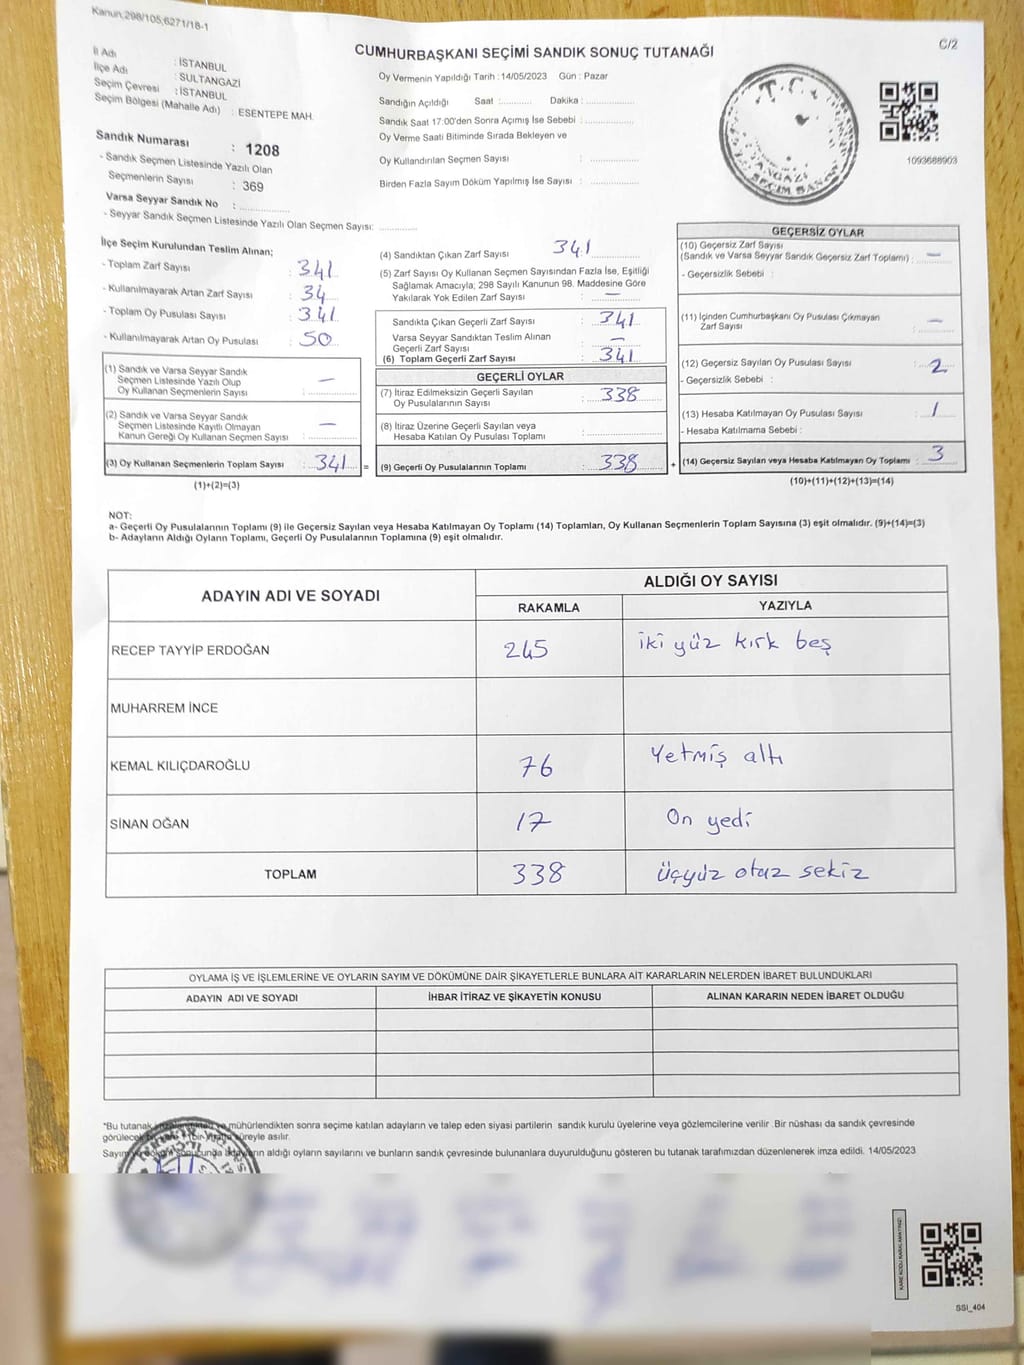 Kanun;298/105,6271/18-1
C/2
CUMHURBAŞKANI SEÇİMİ SANDIK SONUÇ TUTANAĞI
İl Adı : İSTANBUL
İlçe Adı : SULTANGAZİ
Seçim Çevresi : İSTANBUL
Seçim Bölgesi (Mahalle Adı) : ESENTEPE MAH.
Sandık Numarası : 1208
- Sandık Seçmen Listesinde Yazılı Olan
Seçmenlerin Sayısı : 369
Varsa Seyyar Sandık No : ..............
- Seyyar Sandık Seçmen Listesinde Yazılı Olan Seçmen Sayısı: ............
Oy Vermenin Yapıldığı Tarih : 14/05/2023 Gün : Pazar
Sandığın Açıldığı Saat :........... Dakika : ................
Sandık Saat 17:00'den Sonra Açımış İse Sebebi : ................
Oy Verme Saati Bitiminde Sırada Bekleyen ve
Oy Kullandırılan Seçmen Sayısı : ................
Birden Fazla Sayım Döküm Yapılmış İse Sayısı : ................
T.C.
SEÇİM SAN
1093688903
İlçe Seçim Kurulundan Teslim Alınan;
- Toplam Zarf Sayısı : 341
- Kullanılmayarak Artan Zarf Sayısı : 34
- Toplam Oy Pusulası Sayısı : 341
- Kullanılmayarak Artan Oy Pusulası : 50
(1) Sandık ve Varsa Seyyar Sandık
Seçmen Listesinde Yazılı Olup
Oy Kullanan Seçmenlerin Sayısı : —
(2) Sandık ve Varsa Seyyar Sandık
Seçmen Listesinde Kayıtlı Olmayan
Kanun Gereği Oy Kullanan Seçmen Sayısı : —
(3) Oy Kullanan Seçmenlerin Toplam Sayısı : 341 =
(1)+(2)=(3)
(4) Sandıktan Çıkan Zarf Sayısı : 341
(5) Zarf Sayısı Oy Kullanan Seçmen Sayısından Fazla İse, Eşitliği
Sağlamak Amacıyla; 298 Sayılı Kanunun 98. Maddesine Göre
Yakılarak Yok Edilen Zarf Sayısı : —
Sandıkta Çıkan Geçerli Zarf Sayısı : 341
Varsa Seyyar Sandıktan Teslim Alınan
Geçerli Zarf Sayısı : —
(6) Toplam Geçerli Zarf Sayısı : 341
GEÇERLİ OYLAR
(7) İtiraz Edilmeksizin Geçerli Sayılan
Oy Pusulalarının Sayısı : 338
(8) İtiraz Üzerine Geçerli Sayılan veya
Hesaba Katılan Oy Pusulası Toplamı :
(9) Geçerli Oy Pusulalarının Toplamı : 338 +
GEÇERSİZ OYLAR
(10) Geçersiz Zarf Sayısı
(Sandık ve Varsa Seyyar Sandık Geçersiz Zarf Toplamı) : —
- Geçersizlik Sebebi :
(11) İçinden Cumhurbaşkanı Oy Pusulası Çıkmayan
Zarf Sayısı : —
(12) Geçersiz Sayılan Oy Pusulası Sayısı : 2
- Geçersizlik Sebebi :
(13) Hesaba Katılmayan Oy Pusulası Sayısı : 1
- Hesaba Katılmama Sebebi :
(14) Geçersiz Sayılan veya Hesaba Katılmayan Oy Toplamı : 3
(10)+(11)+(12)+(13)=(14)
NOT:
a- Geçerli Oy Pusulalarının Toplamı (9) ile Geçersiz Sayılan veya Hesaba Katılmayan Oy Toplamı (14) Toplamları, Oy Kullanan Seçmenlerin Toplam Sayısına (3) eşit olmalıdır. (9)+(14)=(3)
b- Adayların Aldığı Oyların Toplamı, Geçerli Oy Pusulalarının Toplamına (9) eşit olmalıdır.
ADAYIN ADI VE SOYADI ALDIĞI OY SAYISI
RAKAMLA YAZIYLA
RECEP TAYYİP ERDOĞAN 245 iki yüz kırk beş
MUHARREM İNCE
KEMAL KILIÇDAROĞLU 76 Yetmiş altı
SİNAN OĞAN 17 On yedi
TOPLAM 338 üçyüz otuz sekiz
OYLAMA İŞ VE İŞLEMLERİNE VE OYLARIN SAYIM VE DÖKÜMÜNE DAİR ŞİKAYETLERLE BUNLARA AİT KARARLARIN NELERDEN İBARET BULUNDUKLARI
ADAYIN ADI VE SOYADI İHBAR İTİRAZ VE ŞİKAYETİN KONUSU ALINAN KARARIN NEDEN İBARET OLDUĞU
*Bu tutanak ve mühürlendikten sonra seçime katılan adayların ve talep eden siyasi partilerin sandık kurulu üyelerine veya gözlemcilerine verilir .Bir nüshası da sandık çevresinde
görülecek süreyle asılır.
Sayım adayların aldığı oyların sayılarını ve bunların sandık çevresinde bulunanlara duyurulduğunu gösteren bu tutanak tarafımızdan düzenlenerek imza edildi. 14/05/2023
SSI_404